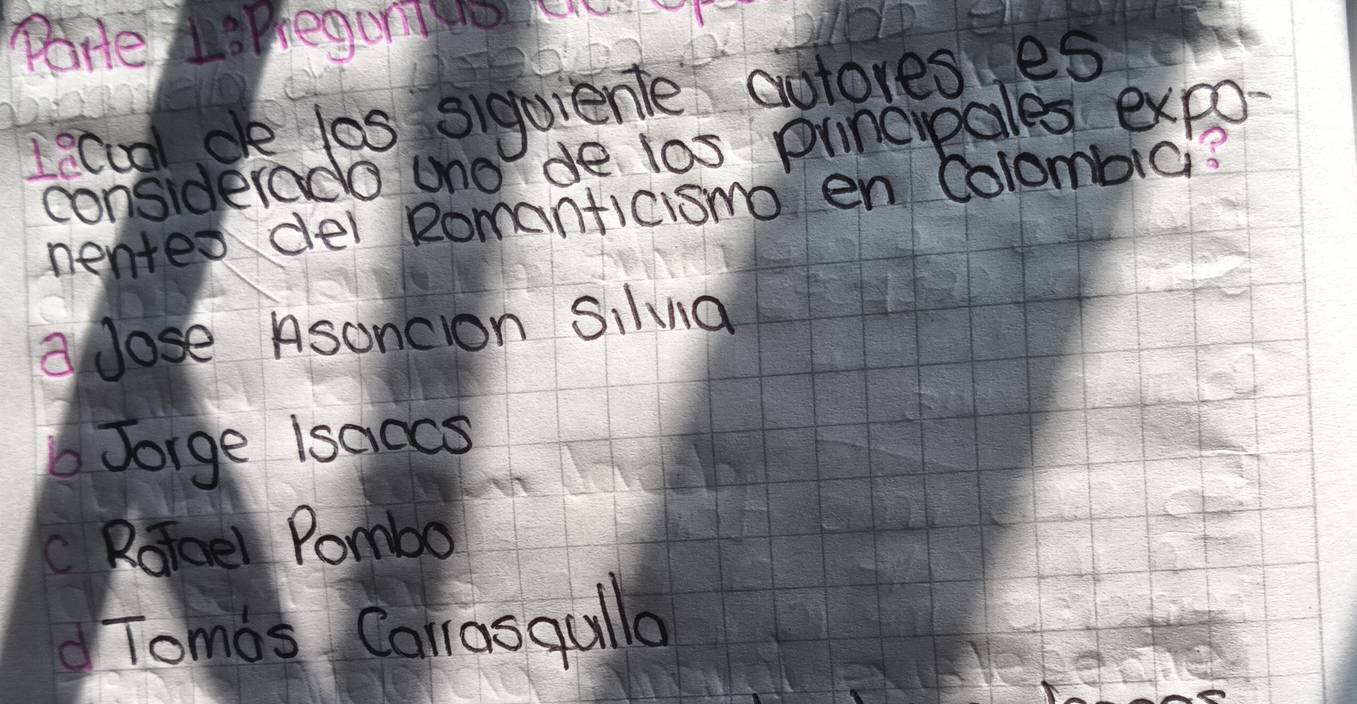 Parte 1: Preguntas de
1¿Cual de los siguiente autores es
considerado uno de los principales expo-
nentes del Romanticismo en Colombia?
a Jose Asoncion Silvia
b Jorge Isaacs
c Rafael Pombo
d Tomás Carrasqulla